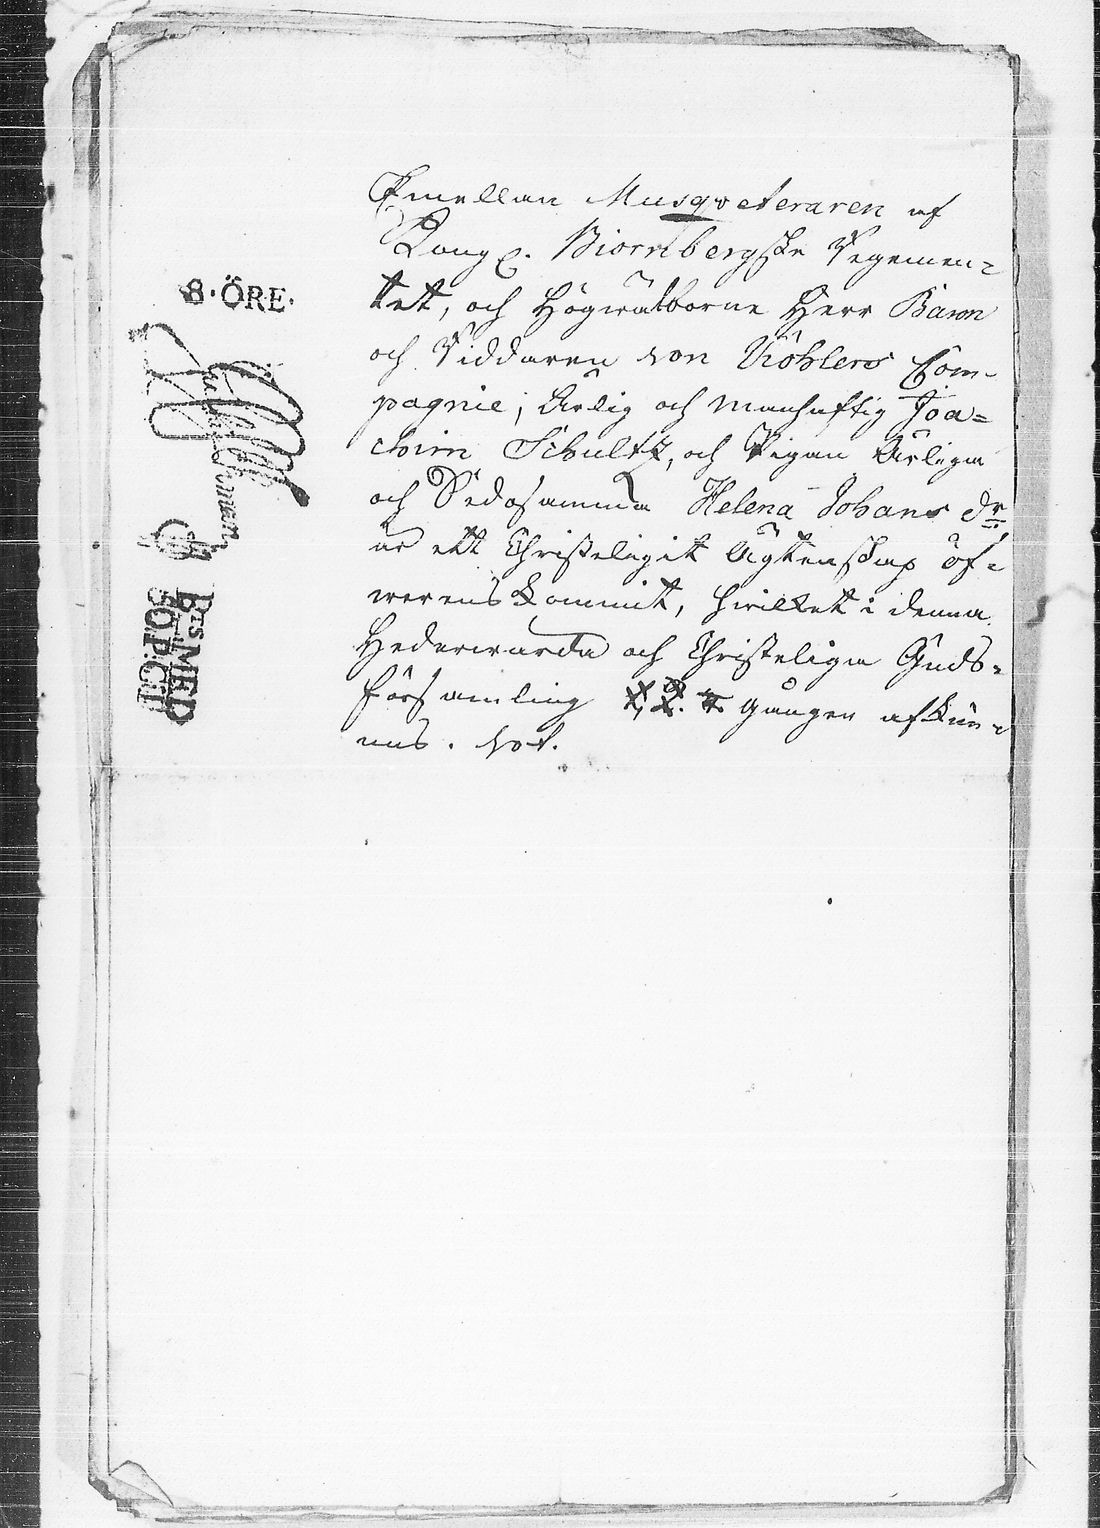 Emellan Musqveteraren af
Kongl. Biornbergske Regemen=
tet, och Högwälborne Herr Baron
och Riddaren von Köhlers Com=
pagnie, Ärlig och Manhaftig Joa=
chim Schultz, och Pigan Ärliga
och Dedosamma Helena Johans dr.
är ett Christeligit Ägtenskap öf=
werenskommit, hwilket i denna
Hederwärda och Christeliga Guds=
församling gången afkun=
nas.
8·ÖRE·
MED